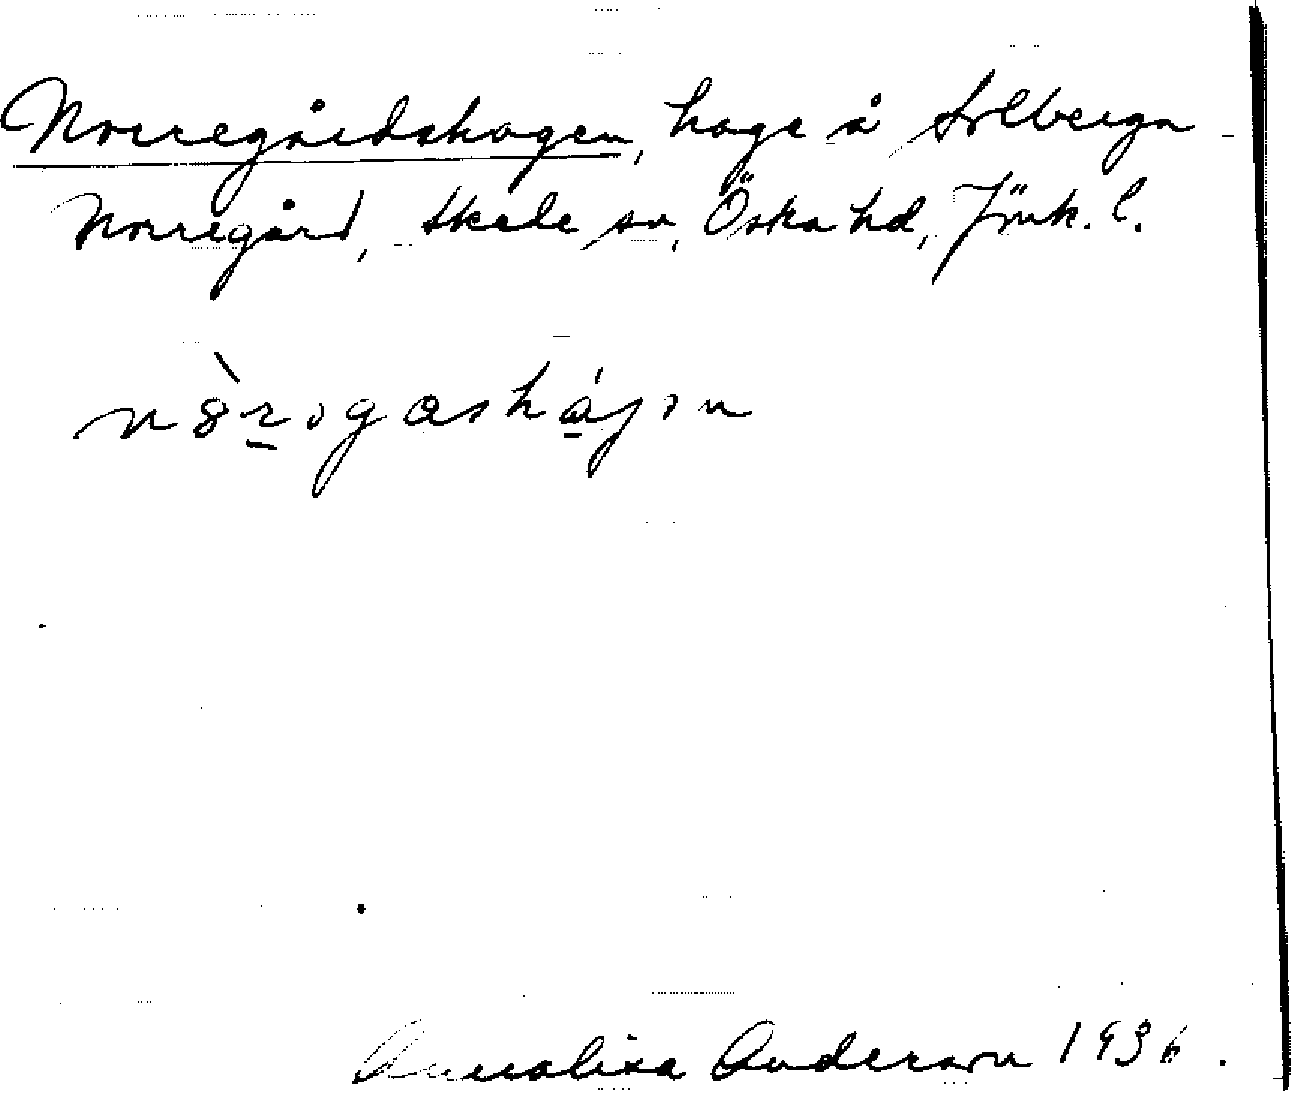 Norregårdshagen, hage å Solberga
Norregård, Skede sn, Östra hd, Jönk. l.
Annalisa Anderson 1936.